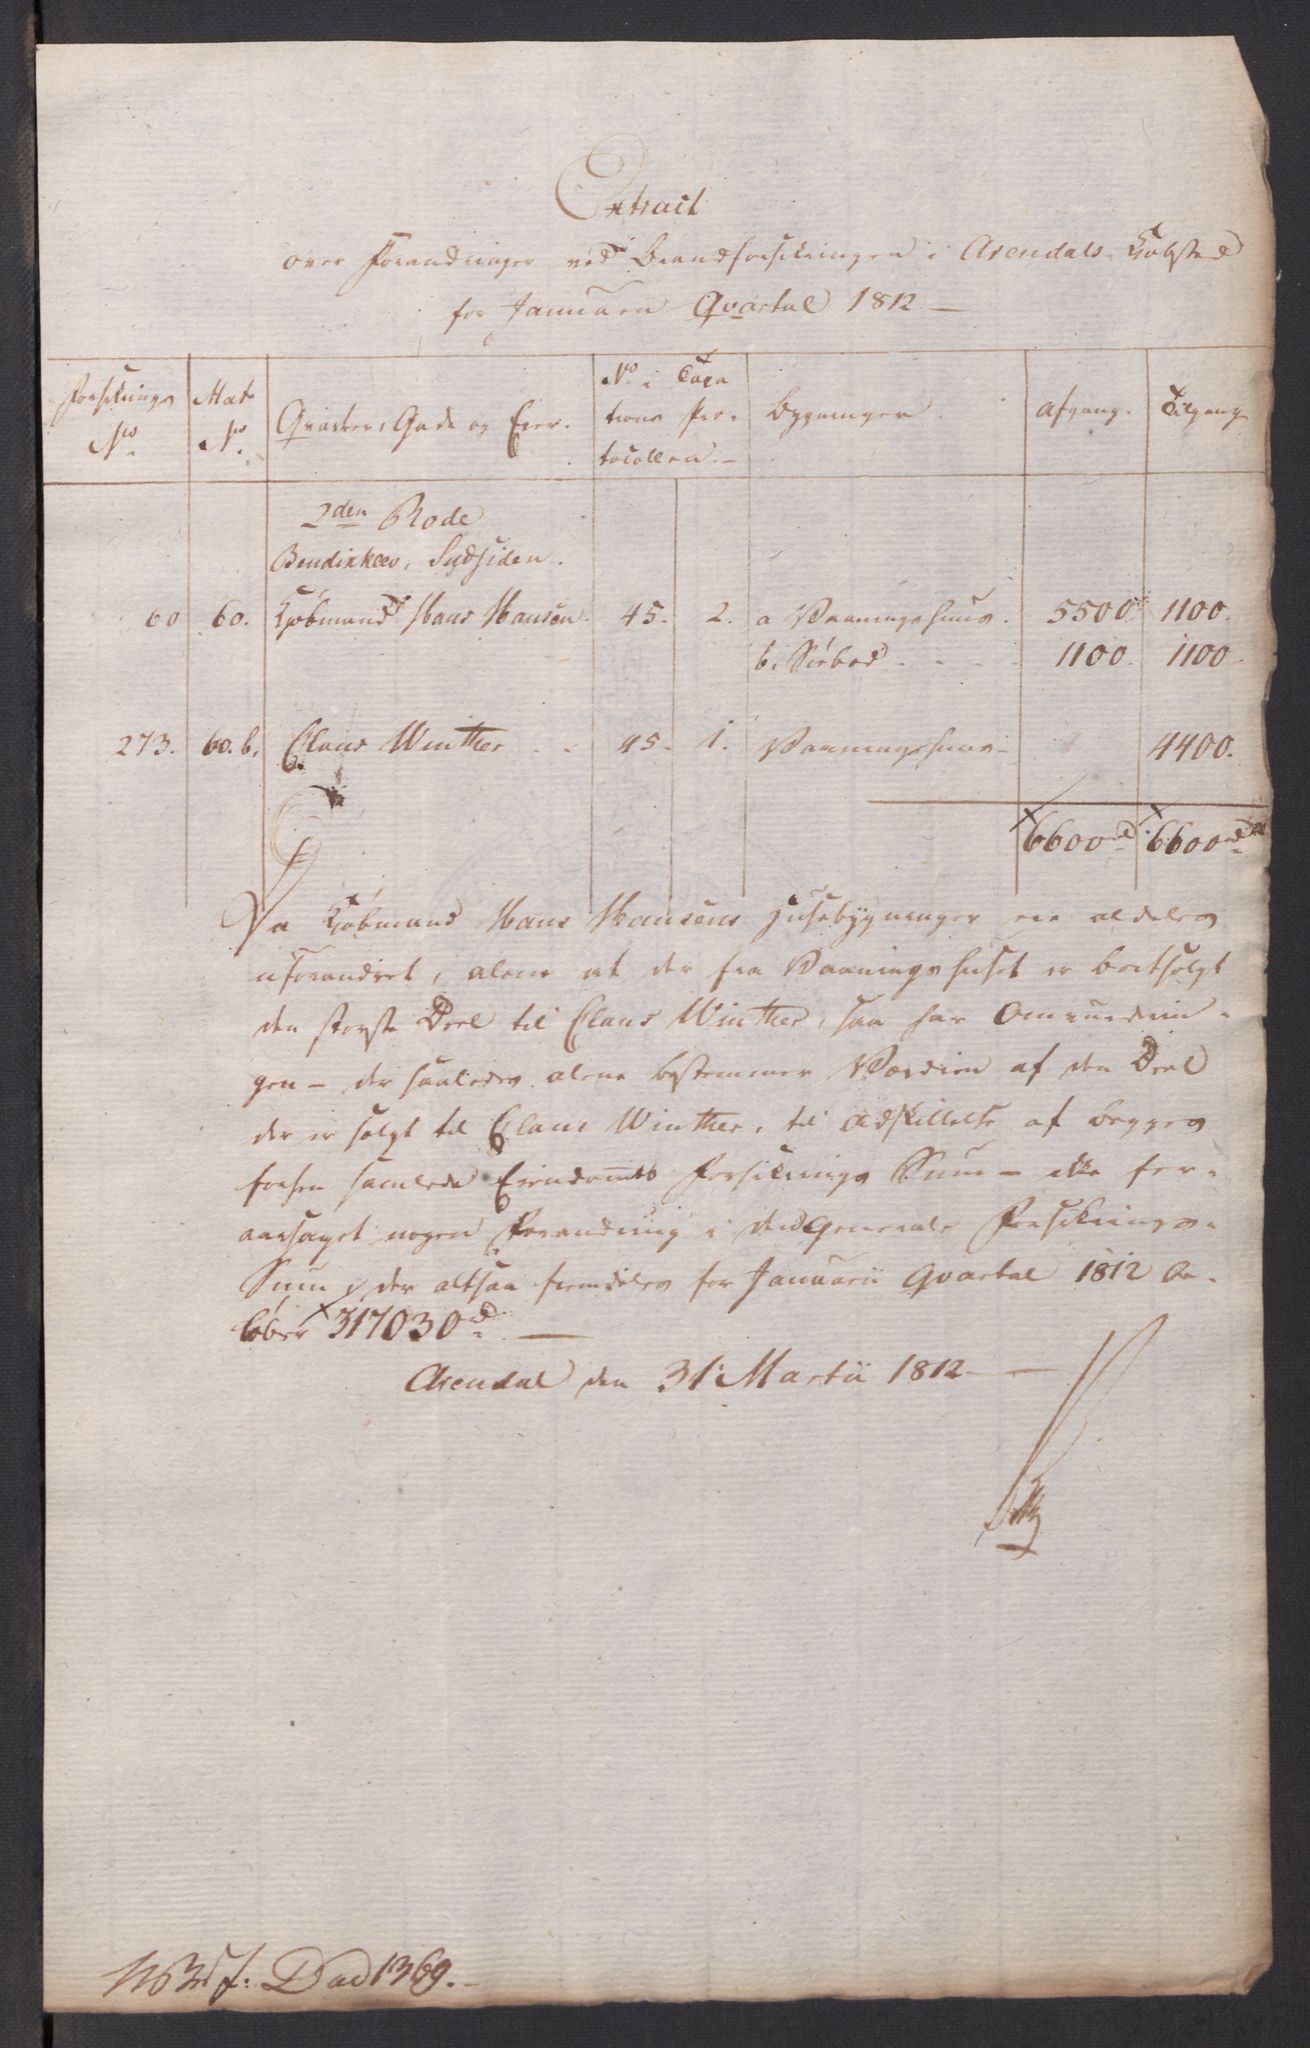 Extract
over Forandringer ved Brandforsikringen i Arendals Kiøbsted
for Januarii Qvartal 1812 —
Forsikrings No. | Mat. No. | Qvarter, Gade og Eier. | No. i Taxationsprotocollen. | Bygninger. | Afgang. | Tilgang
2den Rode
Bendixklev, Sydsiden.
60 60. Kjøbmand Hans Hansen. 45. 2. a Vaaningshuus. 5500 1100.
b. Søebod 1100. 1100.
273. 60.b. Claus Winther 45. 1. Vaaningshuus 4400.
6600rd 6600rd
Da Kjøbmand Hans Hansens Huusebygninger ere aldeles
uforandret, alene at der fra Vaaningshuset er bortsolgt
den største Deel til Claus Winther, saa har Omvurderin-
gen — der saaledes alene bestemmer Værdien af den Deel
der er solgt til Claus Winther, til Adskillelse af begges
forhen samlede Eiendoms Forsikrings Sum — ikke for-
aarsaget nogen Forandring i den Generale Forsikrings-
Sum, der altsaa fremdeles for Januarii Qvartal 1812 be-
løber 317030rd. —
Arendal den 31 Martii 1812 —
1369.